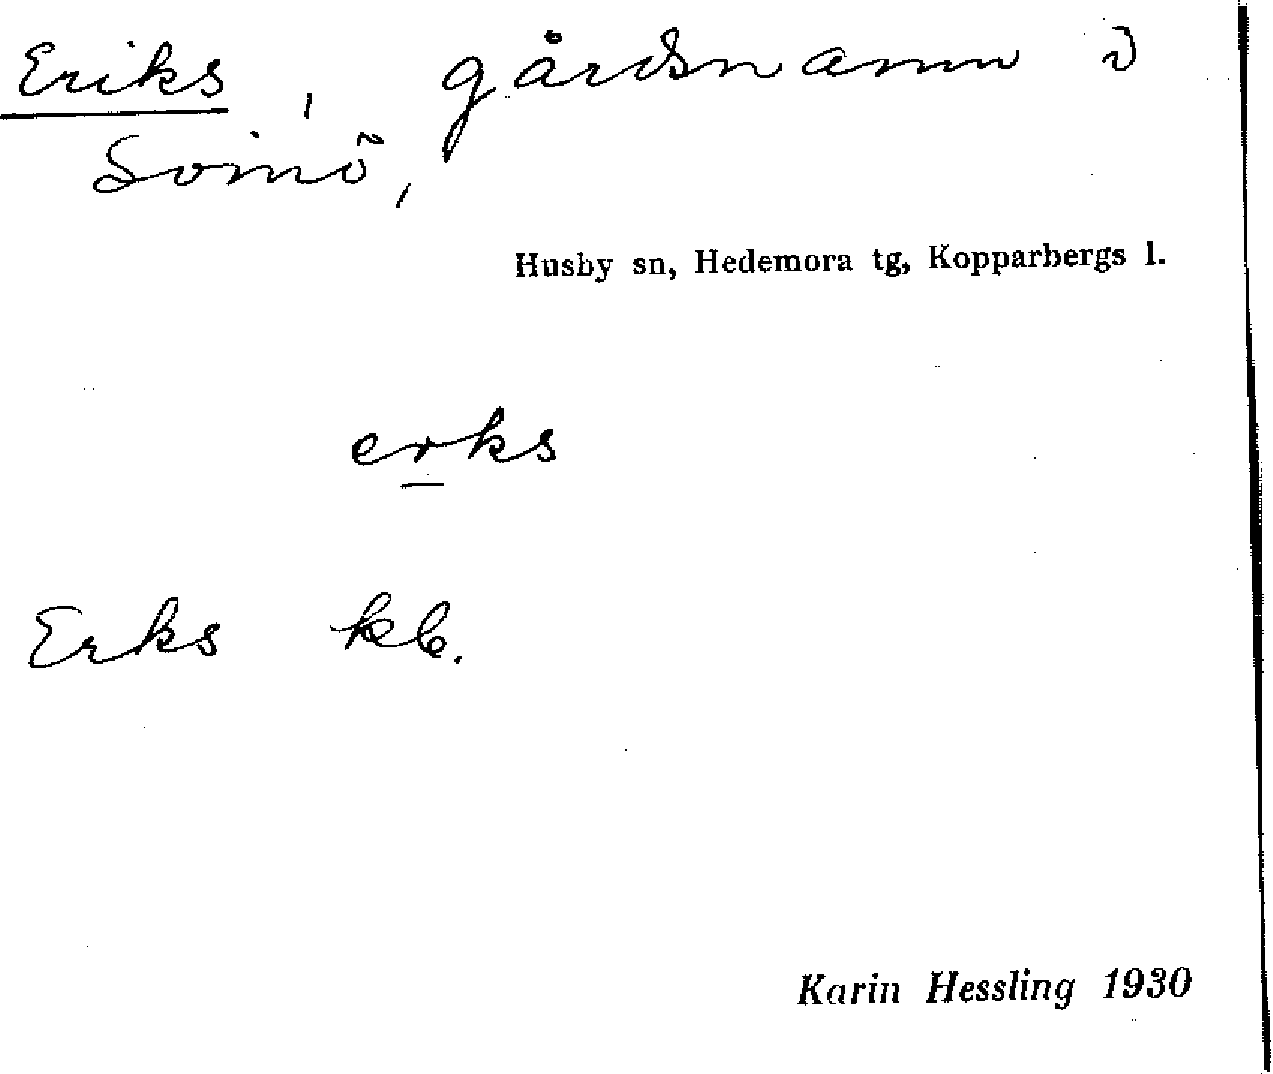 Eriks, gårdsnamn i
Svinö,
Husby sn, Hedemora tg, Kopparbergs l.
erks
Erks kb.
Karin Hessling 1930